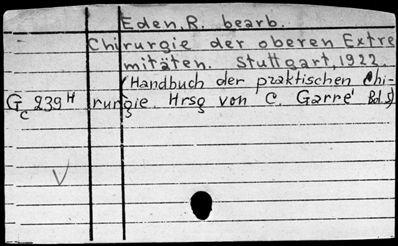 Eden, R. bearb.
Chirurgie der oberen Extre
mitäten. Stuttgart, 1922.
(Handbuch der praktischen Chi-
Gc 239H rurgie. Hrsg von C. Garré Bd. 5)